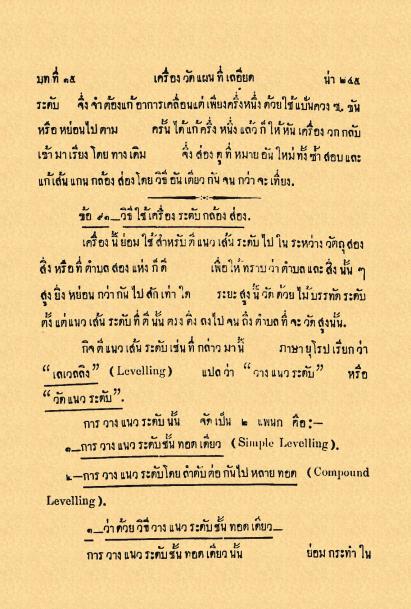 บทที่ ๑๕ เครื่อง วัด แผน ที่ เถอียด น่า ๒๔๕
ระดับ จึ่ง จำ ต้อง แก้ อาการ เคลื่อน แต่ เพียง ครึ่ง หนึ่ง ด้วย ใช้ แป้น ควง ฃ. ขัน
หรือ หย่อน ไป ตาม ครั้น ได้ แก้ ครึ่ง หนึ่ง แล้ว ก็ ให้ หัน เครื่อง วก กลับ
เข้า มา เรียง โดย ทาง เดิม จึ่ง ส่อง ดู ที่ หมาย อัน ใหม่ ทั้ง ซ้ำ สอบ และ
แก้ เส้น แกน กล้อง ส่อง โดย วิธี อัน เดียว กัน จน กว่า จะ เที่ยง.
ข้อ ๙๑—วิธี ใช้ เครื่อง ระดับ กล้อง ส่อง.
เครื่อง นี้ ย่อม ใช้ สำหรับ ตี แนว เส้น ระดับ ไป ใน ระหว่าง วัตถุ สอง
สิ่ง หรือ ที่ ตำบล สอง แห่ง ก็ ดี เพื่อ ให้ ทราบ ว่า ตำบล และ สิ่ง นั้น ๆ
สูง ยิ่ง หย่อน กว่า กัน ไป สัก เท่า ใด ระยะ สูง นี้ วัด ด้วย ไม้ บรรทัด ระดับ
ตั้ง แต่ แนว เส้น ระดับ ที่ ตี นั้น ตรง ดิ่ง ลง ไป จน ถึง ตำบล ที่ จะ วัด สูง นั้น.
กิจ ตี แนว เส้น ระดับ เช่น ที่ กล่าว มา นี้ ภาษา ยุโรป เรียก ว่า
“เลเวลลิง” (Levelling) แปล ว่า “วาง แนว ระดับ” หรือ
“วัด แนว ระดับ”.
การ วาง แนว ระดับ นั้น จัด เป็น ๒ แพนก คือ:—
๑—การ วาง แนว ระดับ ชั้น ทอด เดียว (Simple Levelling).
๒—การ วาง แนว ระดับ โดย ลำดับ ต่อ กัน ไป หลาย ทอด (Compound
Levelling).
๑—ว่า ด้วย วิธี วาง แนว ระดับ ชั้น ทอด เดียว—
การ วาง แนว ระดับ ชั้น ทอด เดียว นั้น ย่อม กระทำ ใน